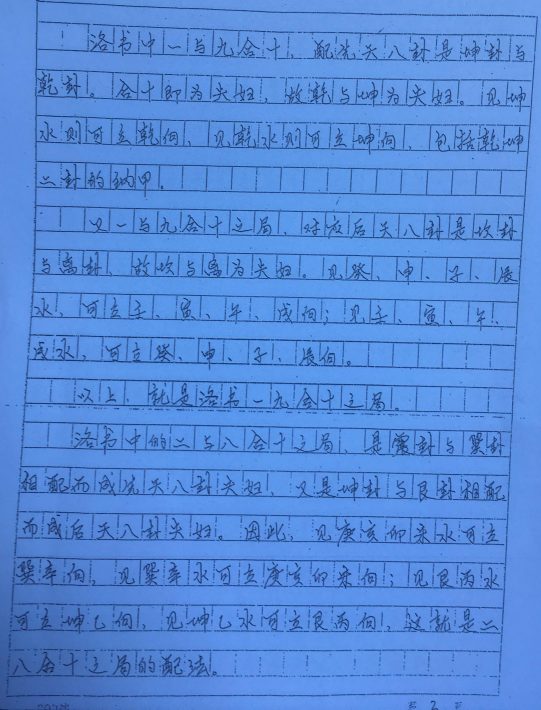 洛书中一与九合十，配先天八卦是坤卦与
乾卦。合十即为夫妇，故乾与坤为夫妇。见坤
水则可立乾向、见乾水则可立坤向，包括乾坤
二卦的纳甲。
又一与九合十之局、对应后天八卦是坎卦
与离卦，故坎与离为夫妇。见癸、申、子、辰
水、可立壬、寅、午、戌向；见壬、寅、午、
戌水，可立癸、申、子、辰向。
以上，就是洛书一九合十之局。
洛书中的二与八合十之局、是震卦与巽卦
相配而成先天八卦夫妇，又是坤卦与艮卦相配
而成后天八卦夫妇。因此，见庚亥卯未水可立
巽辛向，见巽辛水可立庚亥卯未向；见艮丙水
可立坤乙向，见坤乙水可立艮丙向，这就是二
八合十之局的配法。
第 2 页